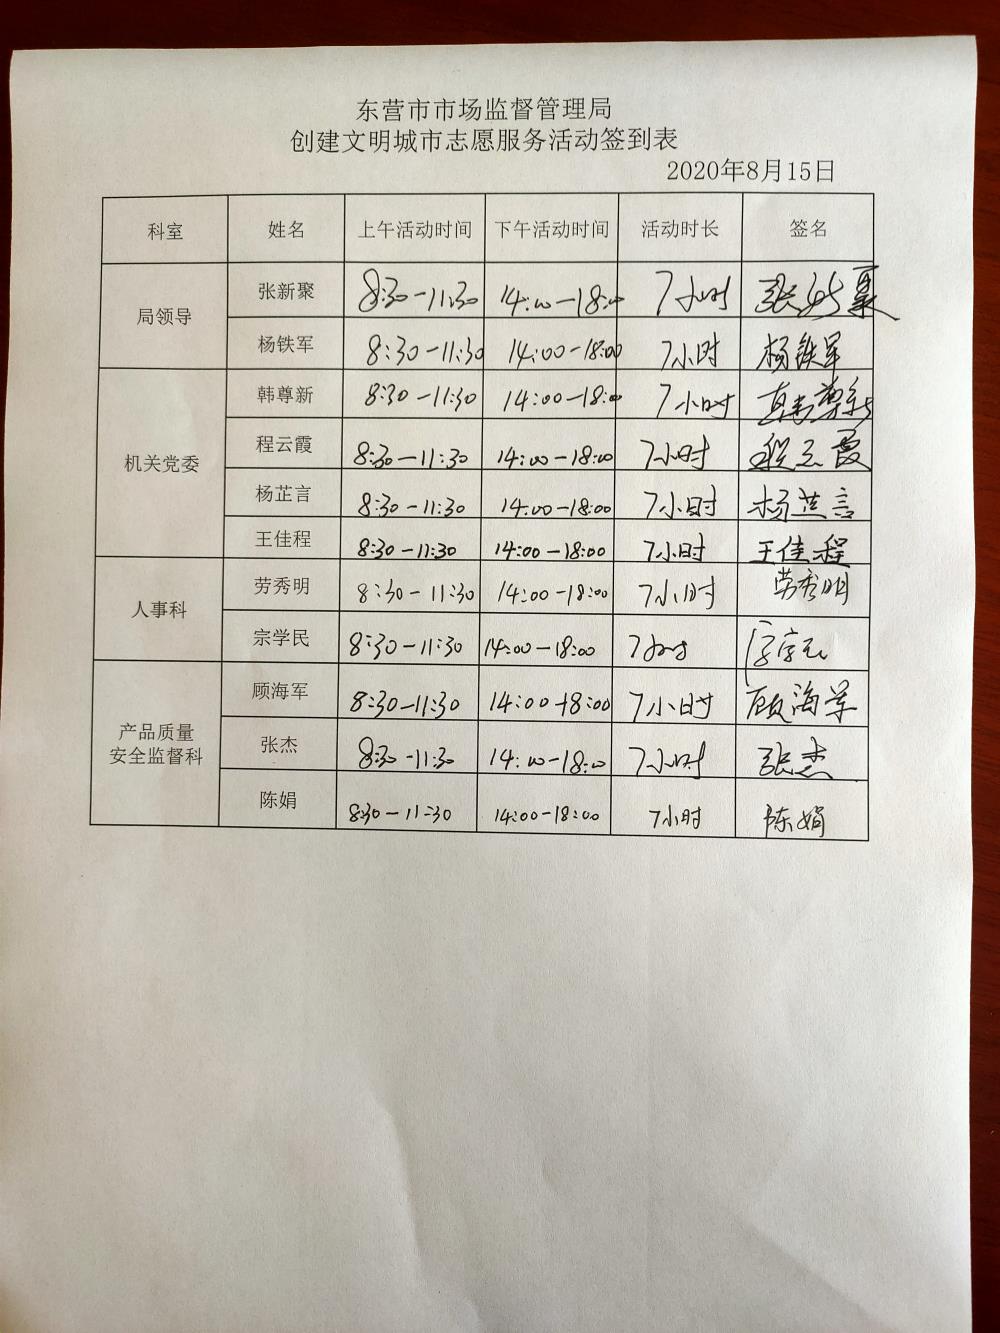 东营市市场监督管理局
创建文明城市志愿服务活动签到表
2020年8月15日
科室 姓名 上午活动时间 下午活动时间 活动时长 签名
局领导
张新聚 8:30-11:30 14:00-18:00 7小时 张新聚
杨铁军 8:30-11:30 14:00-18:00 7小时 杨铁军
机关党委
韩尊新 8:30-11:30 14:00-18:00 7小时 韩尊新
程云霞 8:30-11:30 14:00-18:00 7小时 程云霞
杨芷言 8:30-11:30 14:00-18:00 7小时 杨芷言
王佳程 8:30-11:30 14:00-18:00 7小时 王佳程
人事科
劳秀明 8:30-11:30 14:00-18:00 7小时 劳秀明
宗学民 8:30-11:30 14:00-18:00 7小时
产品质量
安全监督科
顾海军 8:30-11:30 14:00-18:00 7小时 顾海军
张杰 8:30-11:30 14:00-18:00 7小时 张杰
陈娟 8:30-11:30 14:00-18:00 7小时 陈娟